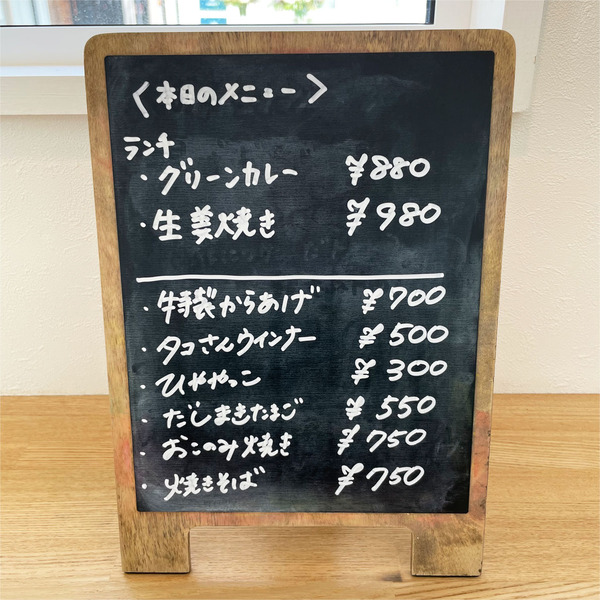 〈本日のメニュー〉
ランチ
・グリーンカレー ¥880
・生姜焼き ¥980
・特製からあげ ¥700
・タコさんウインナー ¥500
・ひややっこ ¥300
・だしまきたまご ¥550
・おこのみ焼き ¥750
・焼きそば ¥750